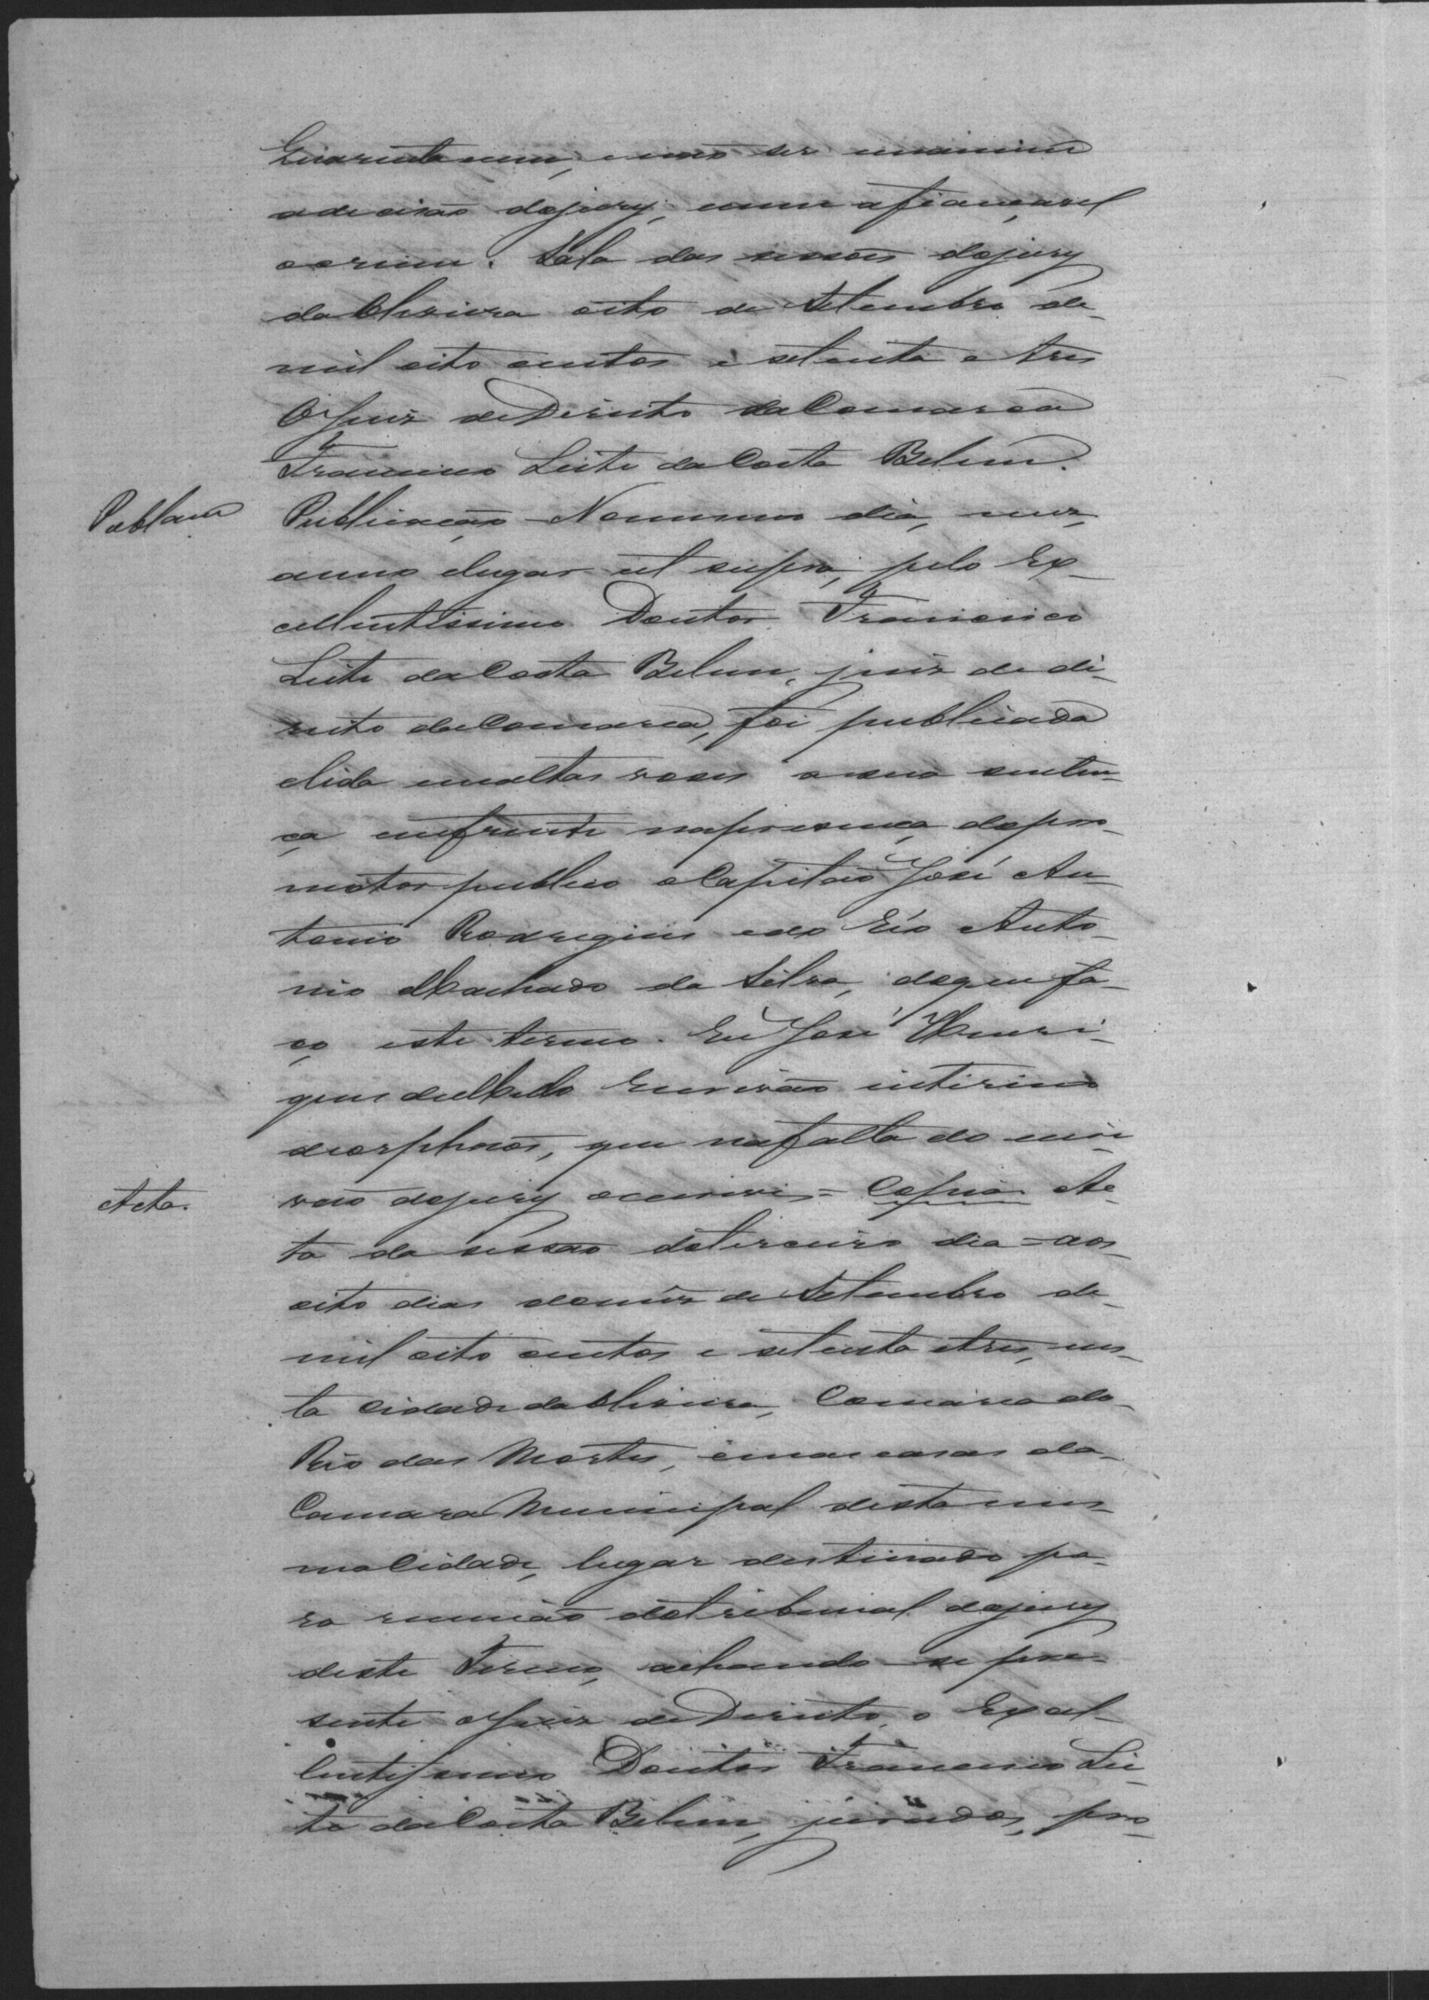 quarenta e um, e não ser unanime
a decisão do jury, e nem afiançavel
o crime. Sala das sessões do jury
da Oliveira oito de Setembro de
mil oito centos e setenta e tres
O Juiz de Direito da Comarca
Francisco Leite da Costa Belem.
Publçam Publicação No mesmo dia, mez,
anno e lugar ut supra, pelo Ex-
cellentissimo Doutor Francisco
Leite da Costa Belem, juiz de di-
reito da Comarca, foi publicada
e lida em altas vozes a sua senten-
ça em frente na presença do pro-
motor publico o Capitão José An-
tonio Rodrigues e do Réo Anto-
nio Machado da Silva, do que fa-
ço este termo. Eu José Henri-
ques de Mello Escrivão interino
de orphãos, que na falta do escri
Acta. vão do jury o escrevi = Copia Ac-
ta da sessão do terceiro dia - aos
oito dias do mez de Setembro de
mil oito centos e setenta e tres, nes-
ta Cidade da Oliveira, Comarca do
Rio das Mortes, e nas casas da
Camara Municipal desta mes-
ma Cidade, lugar destinado pa-
ra reunião do tribunal do jury
deste Termo, achando-se pre-
sente o Juiz de Direito, o Excel-
lentissimo Doutor Francisco Lei-
te da Costa Belem, jurados, pro-